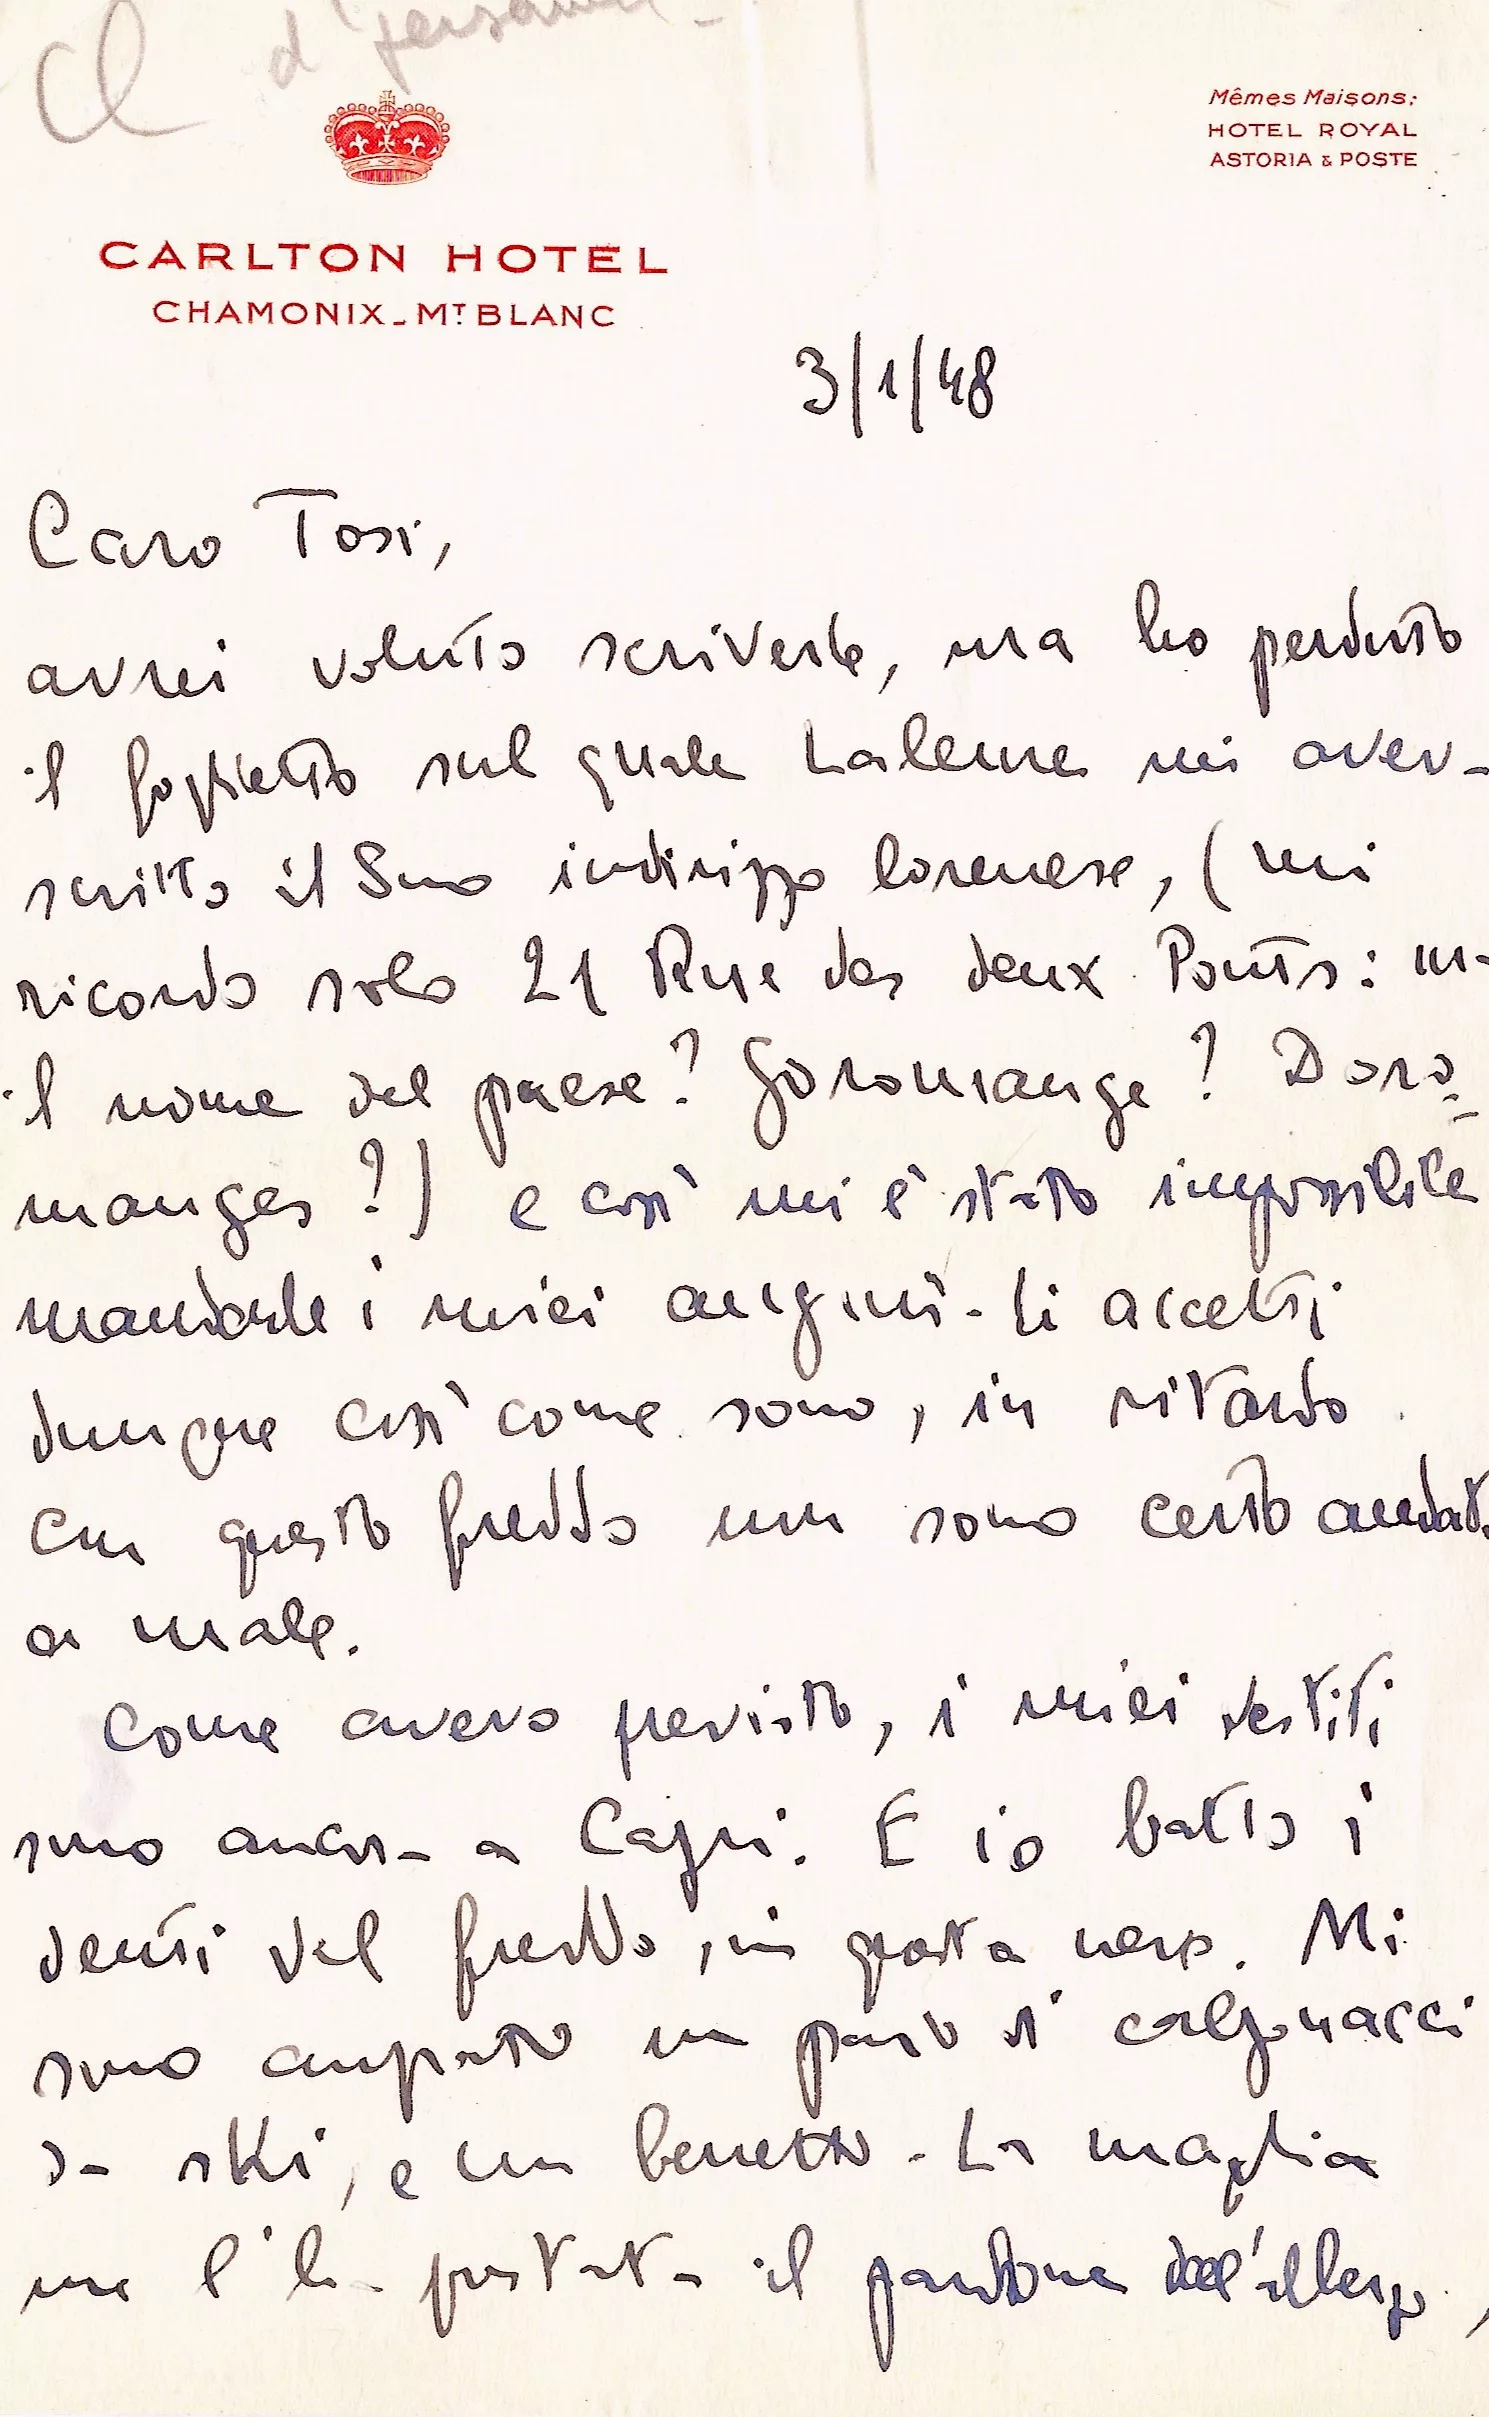 d'
Mêmes Maisons:
HOTEL ROYAL
ASTORIA & POSTE
CARLTON HOTEL
CHAMONIX_MT BLANC
3/1/48
Caro Tosi,
avrei voluto scriverLe, ma ho perduto
il foglietto sul quale mi aver-
scritto il Suo indirizzo lorenese, (mi
ricordo solo 21 Rue des deux Ponts: ma
il nome del paese? Goromange? Doro-
manges?) e così mi è stato impossibile
mandarLe i miei auguri. Li accetti
dunque così come sono, in ritardo.
Con questo freddo non sono certo andati
a male.
Come avevo previsto, i miei vestiti
sono ancora a Capri. E io batto i
denti del freddo, in giacca nera. Mi
sono comprato un paio di calzonacci
da ski, e un berretto. La maglia
me l'ha prestata il padrone dell'albergo,